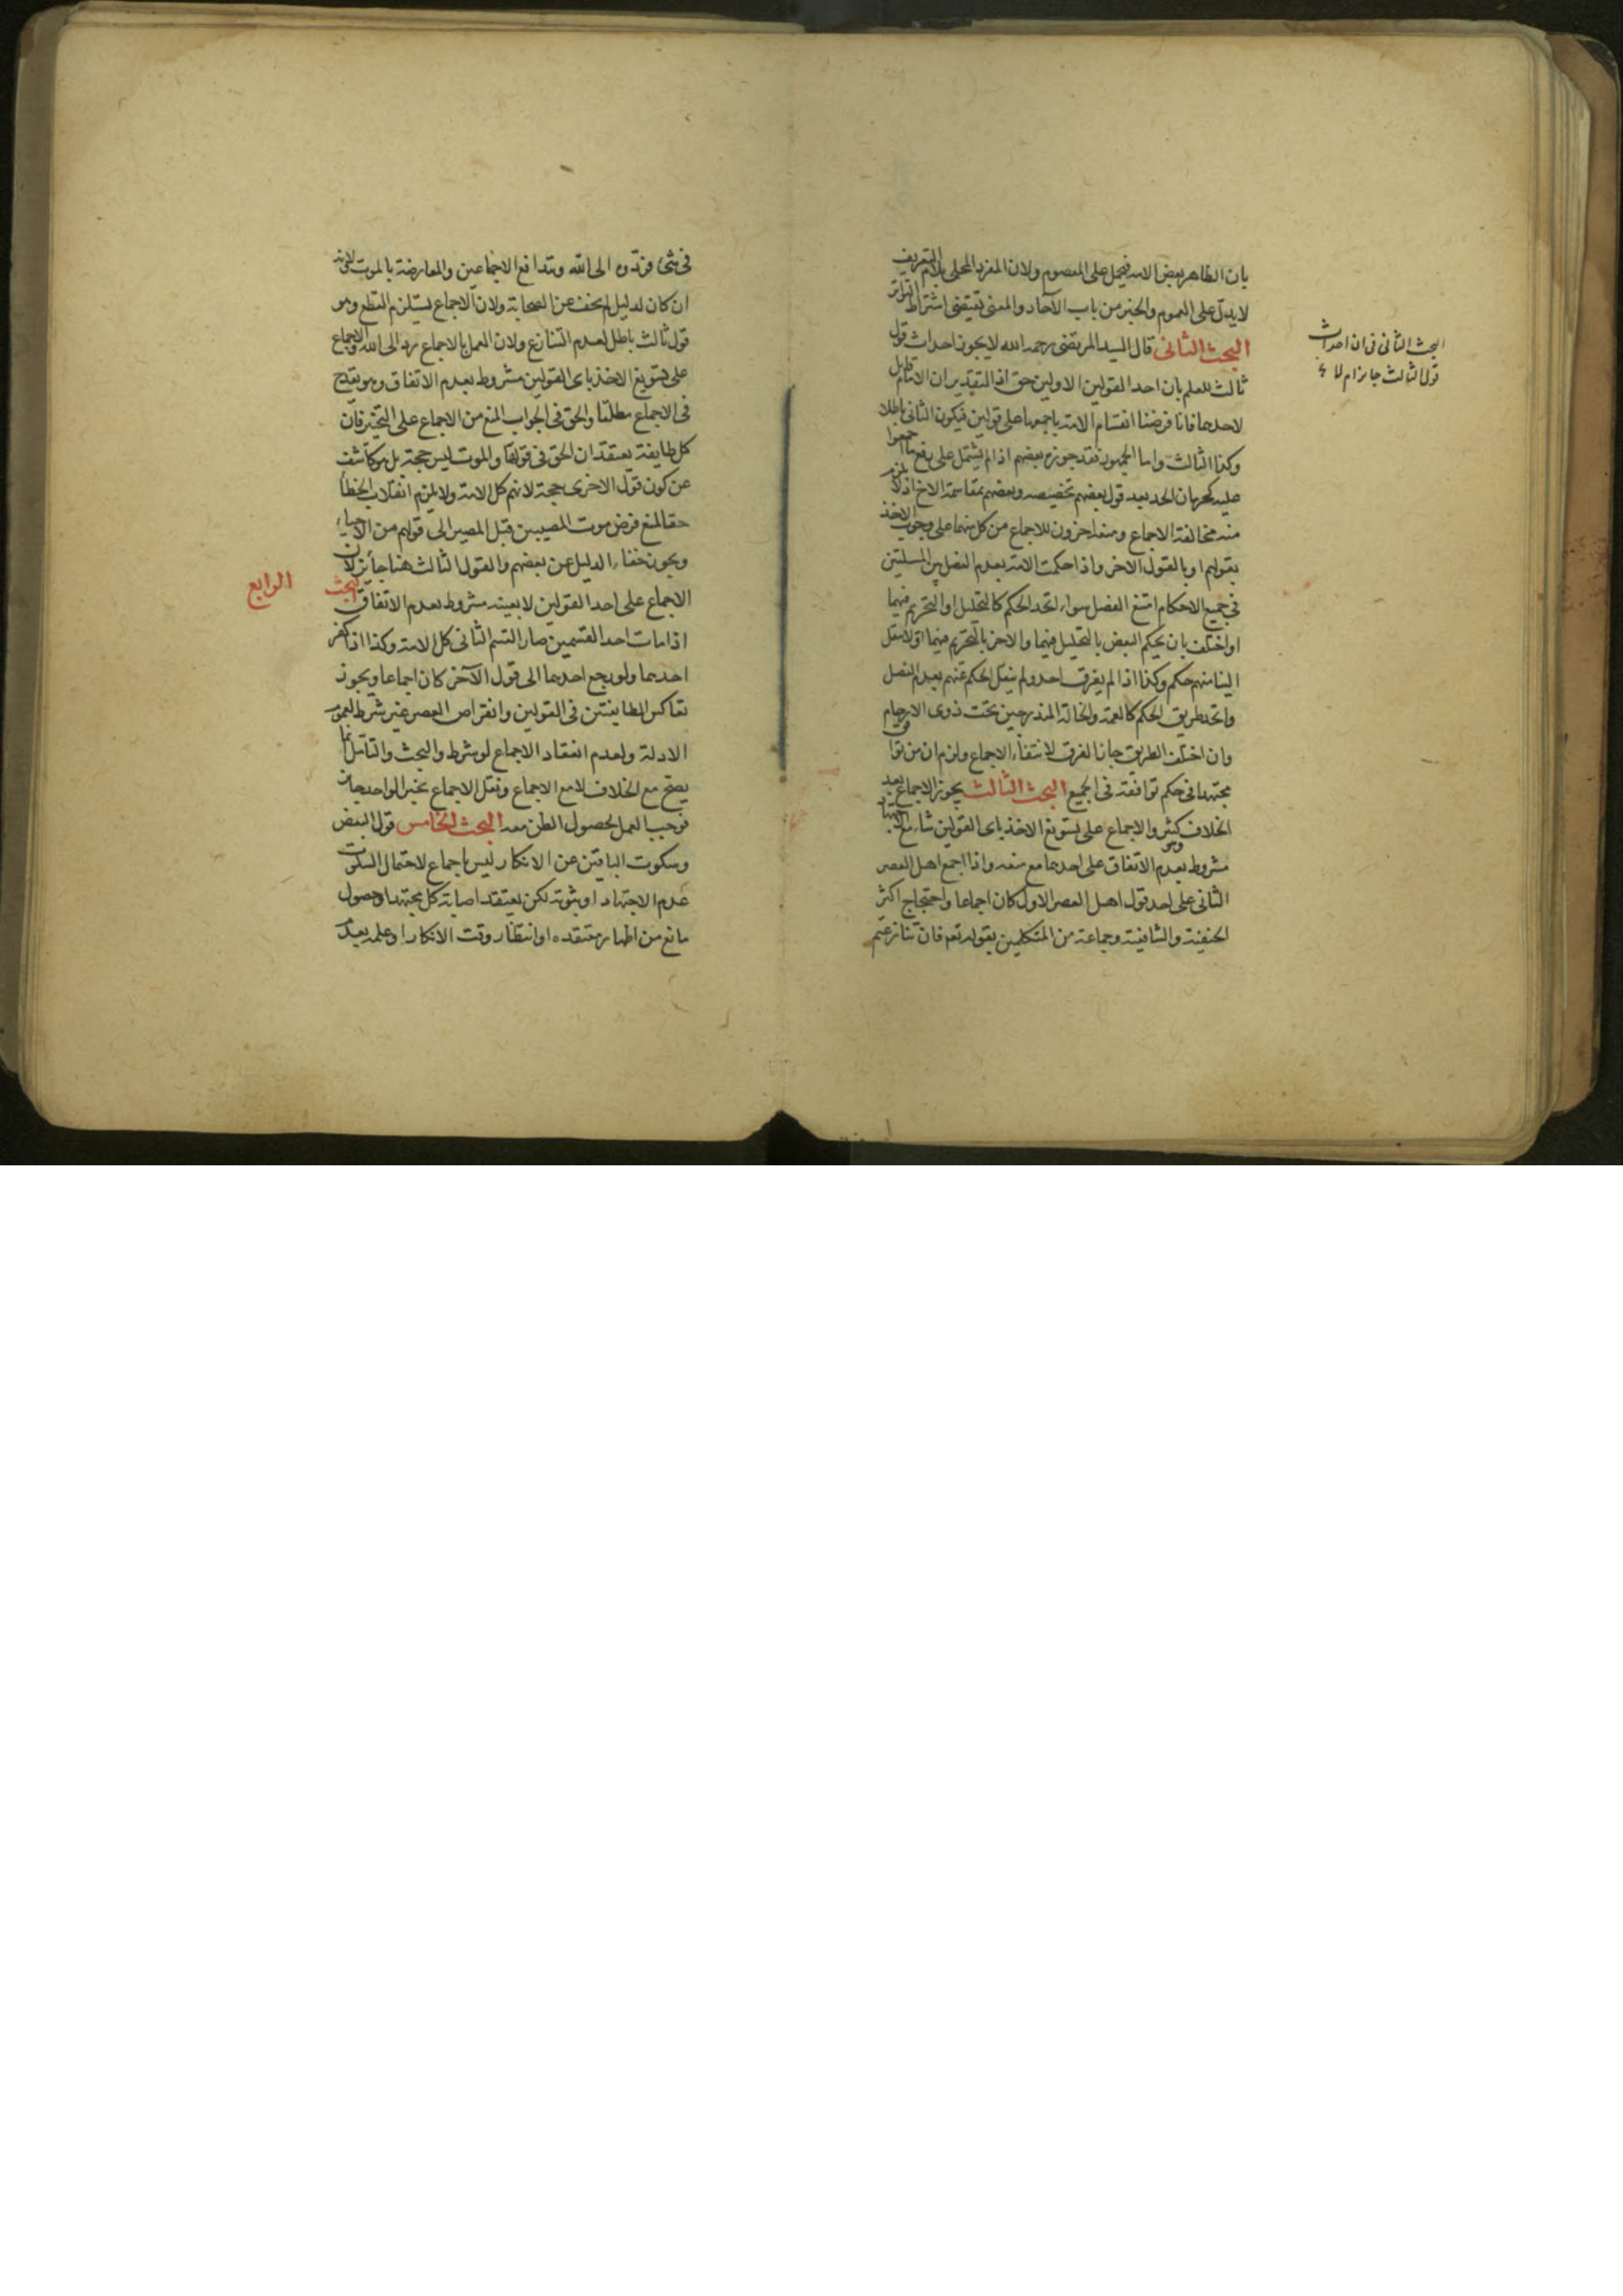 بان الظاهر بعض الامة فيحمل على المعصوم ولان المفرد المحلى بلام التعريف
لا يدل على العموم والخبر من باب الآحاد والمعنى يقتضى اشتراط التواتر
البحث الثانى قال السيد المرتضى رحمه الله لا يجوز احداث قول
ثالث للعلم بان احد القولين الاولين حق اذ التقدير ان الامام قايل
لاحدها فانا فرضنا انقسام الامة باجمعها على قولين فيكون الثانى باطلا
وكذا الثالث واما الجمهور فقد جوزه بعضهم اذا لم يشتمل على رفع ما اجمعوا
عليه كحرمان الجد بعد قول بعضهم تخصيصه وبعضهم بمقاسمة الاخ اذ لا يلزم
منه مخالفة الاجماع ومنعه اخرون للاجماع من كل منهما على وجوب الاخذ
بقولهم او بالقول الاخر واذا حكمت الامة بعدم الفصل بين المسئلتين
فى جميع الاحكام امتنع الفصل سواء اتحد الحكم كالتحليل او التحريم فيهما
او اختلف بان يحكم البعض بالتحليل فيهما والاخر بالتحريم فيهما او لا ينقل
الينا منهم حكم وكذا اذا لم يفرق احد ولم ينقل الحكم عنهم بعدم الفصل
واتحد طريق الحكم كالعمة والخالة المندرجين تحت ذوى الارحام
وان اختلف الطريق جاز الفرق لانتفاء الاجماع ولزم ان من وافق
مجتهدا فى حكم توافقه فى الجميع البحث الثالث يجوز الاجماع بعد
الخلاف كثير والاجماع على تسويغ الاخذ باى القولين شاء مع
مشروط بعدم الاتفاق على احدهما مع منعه واذا اجمع اهل العصر
الثانى على احد قول اهل العصر الاول كان اجماعا واحتجاج اكثر
الحنفية والشافعية وجماعة من المتكلمين بقوله تعم فان تنازعتم
البحث الثانى فى ان احداث
قول الثالث جايز ام لا
فى شئ فردوه الى الله وتدافع الاجماعين والمعارضة بالموت لانه
ان كان لدليل لم يخف عن الصحابة ولان الاجماع يستلزم القطع وهو
قول ثالث باطل لعدم التنازع ولان العمل بالاجماع رد الى الله والاجماع
على تسويغ الاخذ باى القولين مشروط بعدم الاتفاق وهو يقدح
فى الاجماع مطلقا والحق فى الجواب المنع من الاجماع على التخير فان
كل طايفة يعتقد ان الحق فى قولها والموت ليس حجة بل هو كاشف
عن كون قول الاخرى حجة لانهم كل الامة ولا يلزم انقلاب الخطأ
حقا لمنع فرض موت المصيبين قبل المصير الى قولهم من الاحياء
ويجوز خفاء الدليل عن بعضهم والقول الثالث هنا جائز لان
الاجماع على احد القولين لا بعينه مشروط بعدم الاتفاق البحث الرابع
اذا مات احد القسمين صار القسم الثانى كل الامة وكذا اذا كفر
احدهما ولو رجع احدهما الى قول الآخر كان اجماعا ويجوز
تعاكس الطايفتين فى القولين وانقراض العصر غير شرط لعموم
الادلة ولعدم انعقاد الاجماع لو شرط والبحث والتأمل انما
يصح مع الخلاف لا مع الاجماع ونقل الاجماع بخبر الواحد جايز
فوجب العمل لحصول الظن معه البحث الخامس قول البعض
وسكوت الباقين عن الانكار ليس باجماع لاحتمال السكوت
عدم الاجتهاد او ثبوته لكن يعتقد اصابة كل مجتهد او حصول
مانع من اظهار معتقده او انتظار وقت الانكار او علمه بعدم